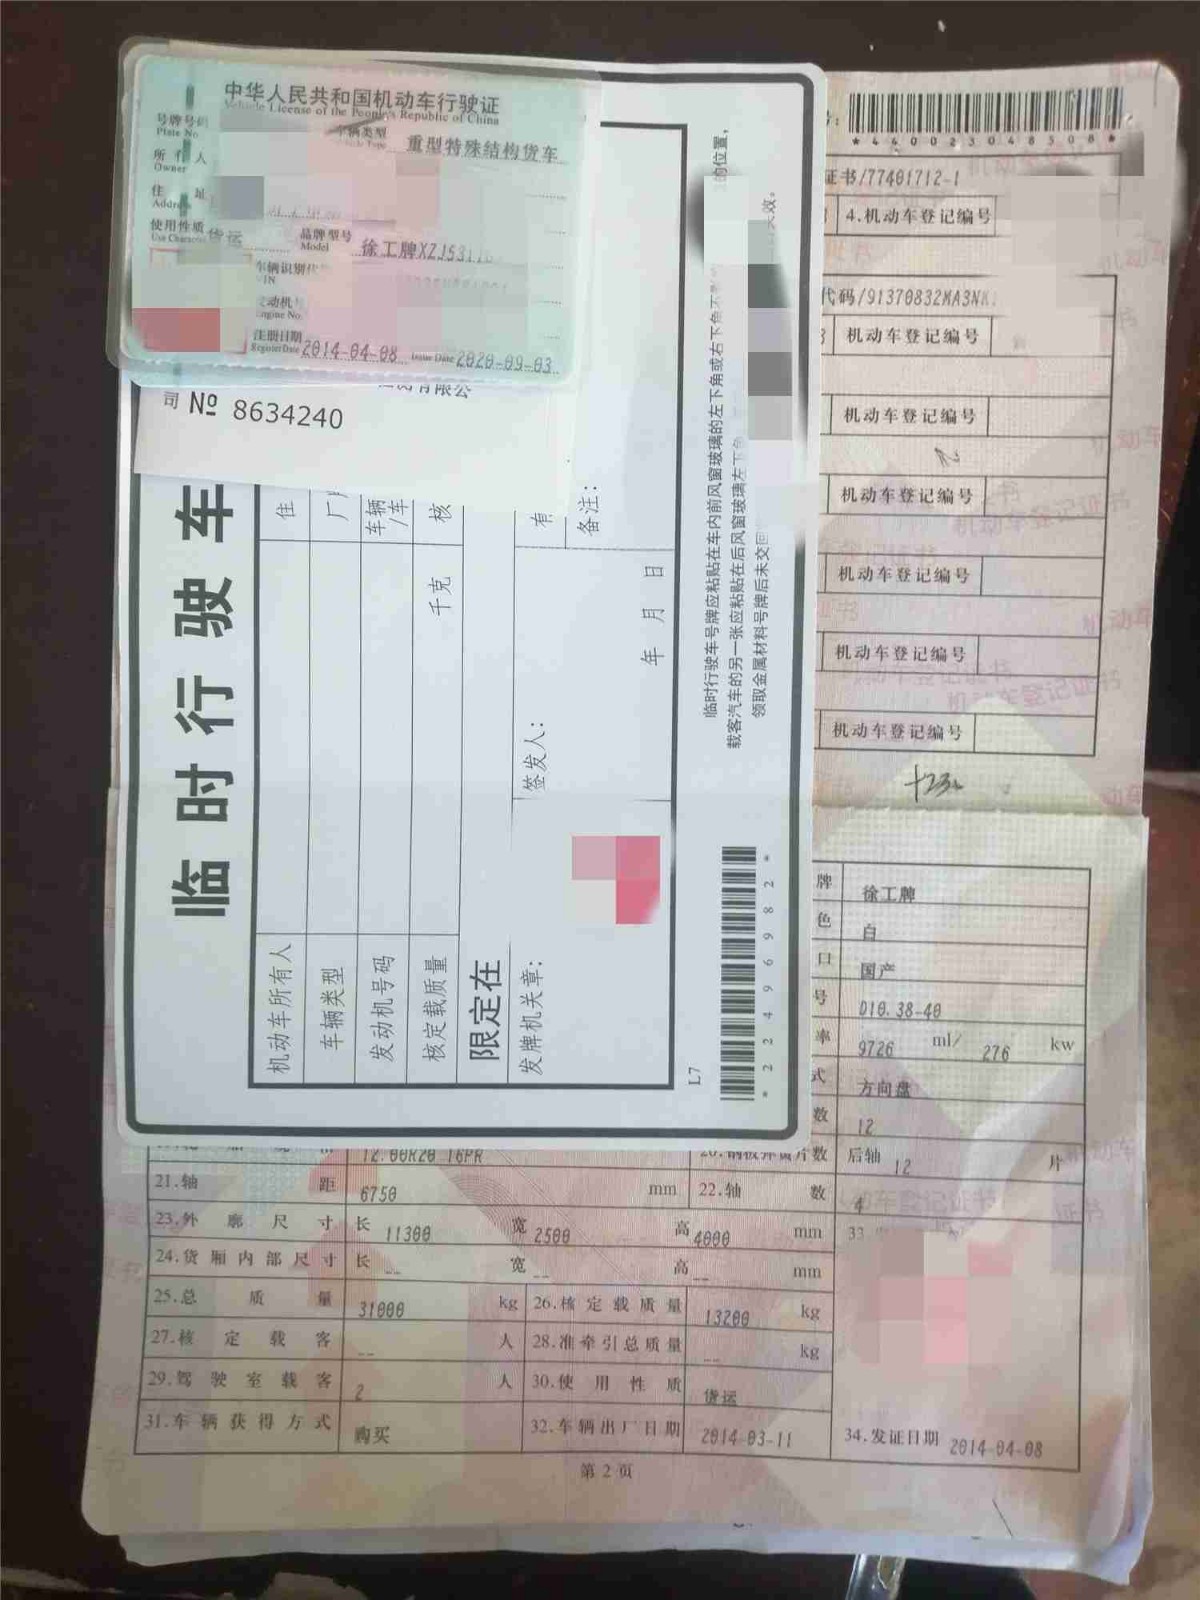 中华人民共和国机动车行驶证
Vehicle License of the People's Republic of China
号牌号码
Plate No
车辆类型
重型特殊结构货车
所有人
Owner
住址
Address
使用性质
Use Character
货运
品牌型号
Model
徐工牌XZJ531
车辆识别代
VIN
发动机号
Engine No
注册日期
Register Date
2014-04-08
Issue Date
2020-09-03
有限公
司 № 8634240
临时行驶车
机动车所有人
住
车辆类型
厂
发动机号码
车辆
/车
核定载质量
千克
核
限定在
有
发牌机关章:
签发人:
年 月 日
备注:
L7
临时行驶车号牌应粘贴在车内前风窗玻璃的左下角或右下角不
的位置,
载客汽车的另一张应粘贴在后风窗玻璃左下角
领取金属材料号牌后未交回
效。
*22496982*
*440023048508*
证书/77401712-1
4.机动车登记编号
代码/91370832MA3NK
机动车登记编号
机动车登记编号
机动车登记编号
机动车登记编号
机动车登记编号
机动车登记编号
牌 徐工牌
色 白
口 国产
号 D10.38-40
率 9726 ml/ 276 kw
式 方向盘
数 12
12.00R20 16PR
20.钢板弹簧片数 后轴 12 片
21.轴距 6750 mm 22.轴数 4
23.外廓尺寸 长 11300 宽 2500 高 4000 mm 33
24.货厢内部尺寸 长 -- 宽 -- 高 -- mm
25.总质量 31000 kg 26.核定载质量 13200 kg
27.核定载客 -- 人 28.准牵引总质量 -- kg
29.驾驶室载客 2 人 30.使用性质 货运
31.车辆获得方式 购买 32.车辆出厂日期 2014-03-11 34.发证日期 2014-04-08
第2页